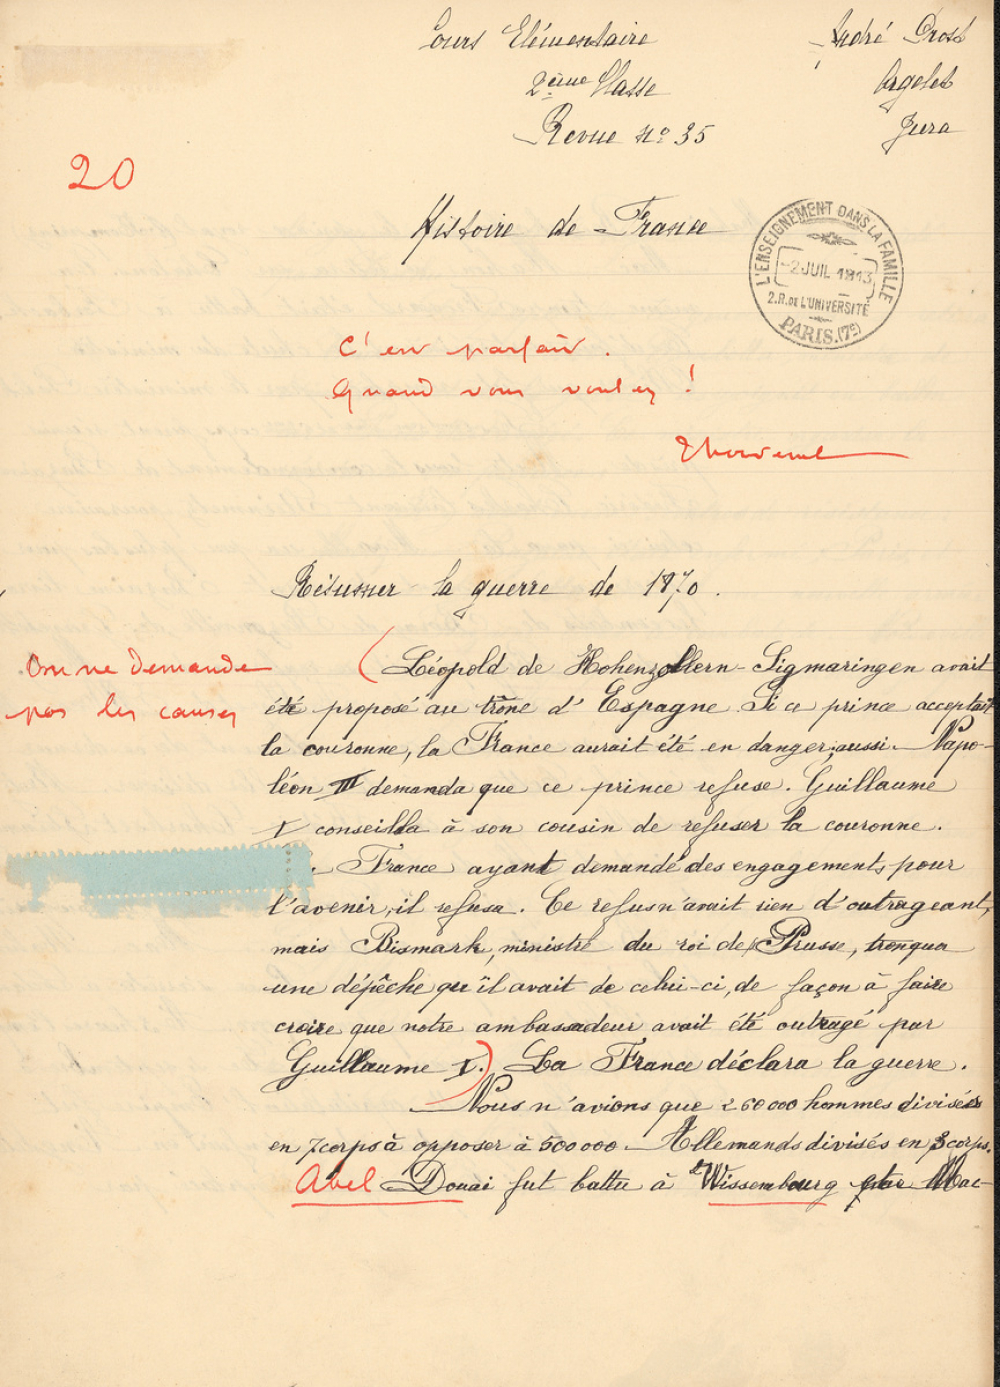 Cours Elémentaire
André Prost
2ème Classe
Orgelet
Revue Nº 35
Jura
20
Histoire de France
L'ENSEIGNEMENT DANS LA FAMILLE
2 JUIL 1913
2.R. DE L'UNIVERSITÉ
PARIS.(7e)
C'est parfait.
Quand vous voulez !
Résumer la guerre de 1870.
On ne demande
pas les causes
(Léopold de Hohenzollern-Sigmaringen avait
été proposé au trône d'Espagne. Si ce prince acceptait
la couronne, la France aurait été en danger; aussi Napo-
léon III demanda que ce prince refuse. Guillaume
I conseilla à son cousin de refuser la couronne.
France ayant demandé des engagements pour
l'avenir, il refusa. Ce refus n'avait rien d'outrageant,
mais Bismark, ministre du roi de Prusse, tronqua
une dépêche qu'il avait de celui-ci, de façon à faire
croire que notre ambassadeur avait été outragé par
Guillaume I.) La France déclara la guerre.
Nous n'avions que 260000 hommes divisés
en 7 corps à opposer à 500000 Allemands divisés en 3 corps.
Abel Douai fut battu à Wissembourg Mac-